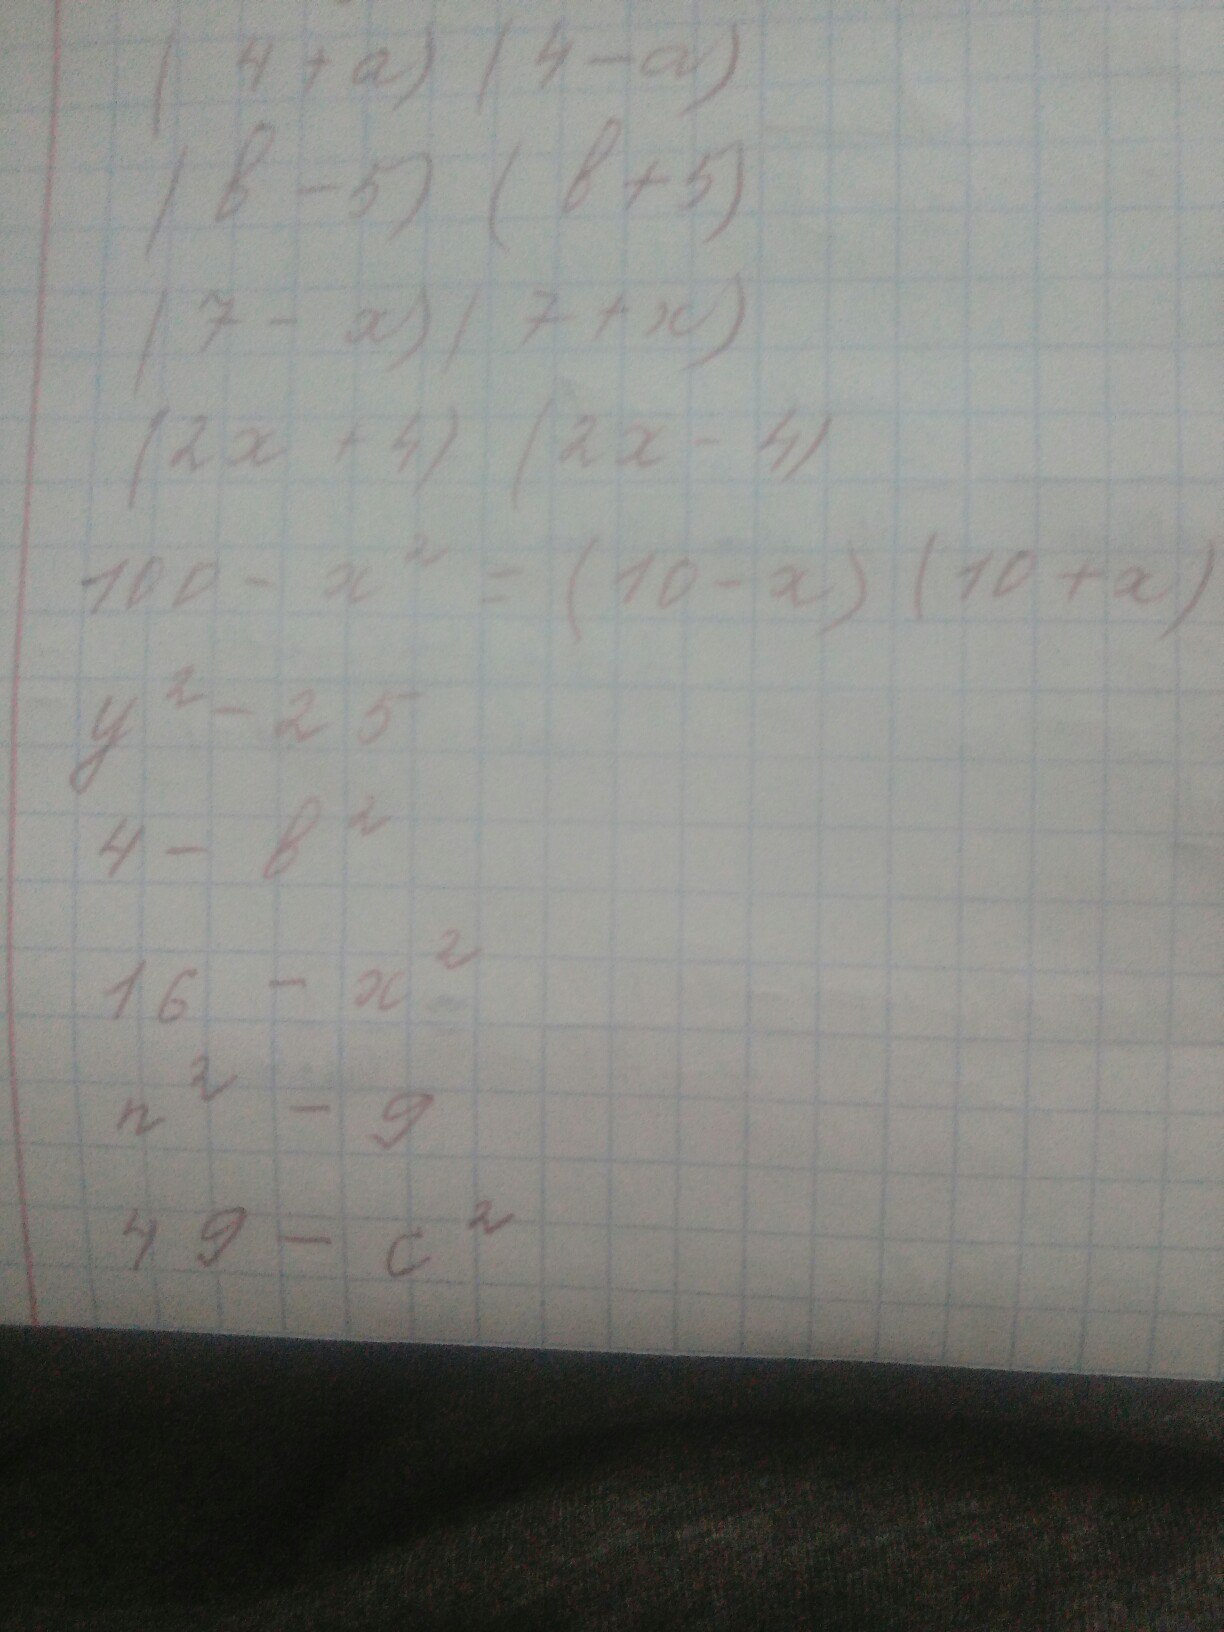 (4+a)(4-a)
(b-5)(b+5)
(7-x)(7+x)
(2x+4)(2x-4)
100-x²=(10-x)(10+x)
y²-25
4-b²
16-x²
n²-9
49-c²